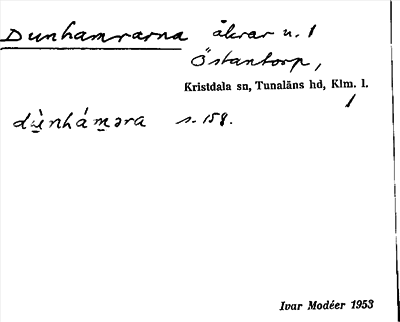 Dunhamrarna åkrar u. 1
Östantorp,
Kristdala sn, Tunaläns hd, Klm. l.
1
dùnháməra s. 158.
Ivar Modéer 1953